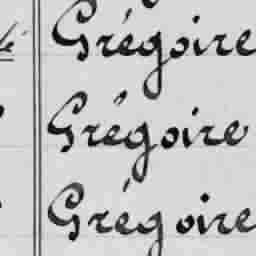 Grégoire
Grégoire
Grégoire